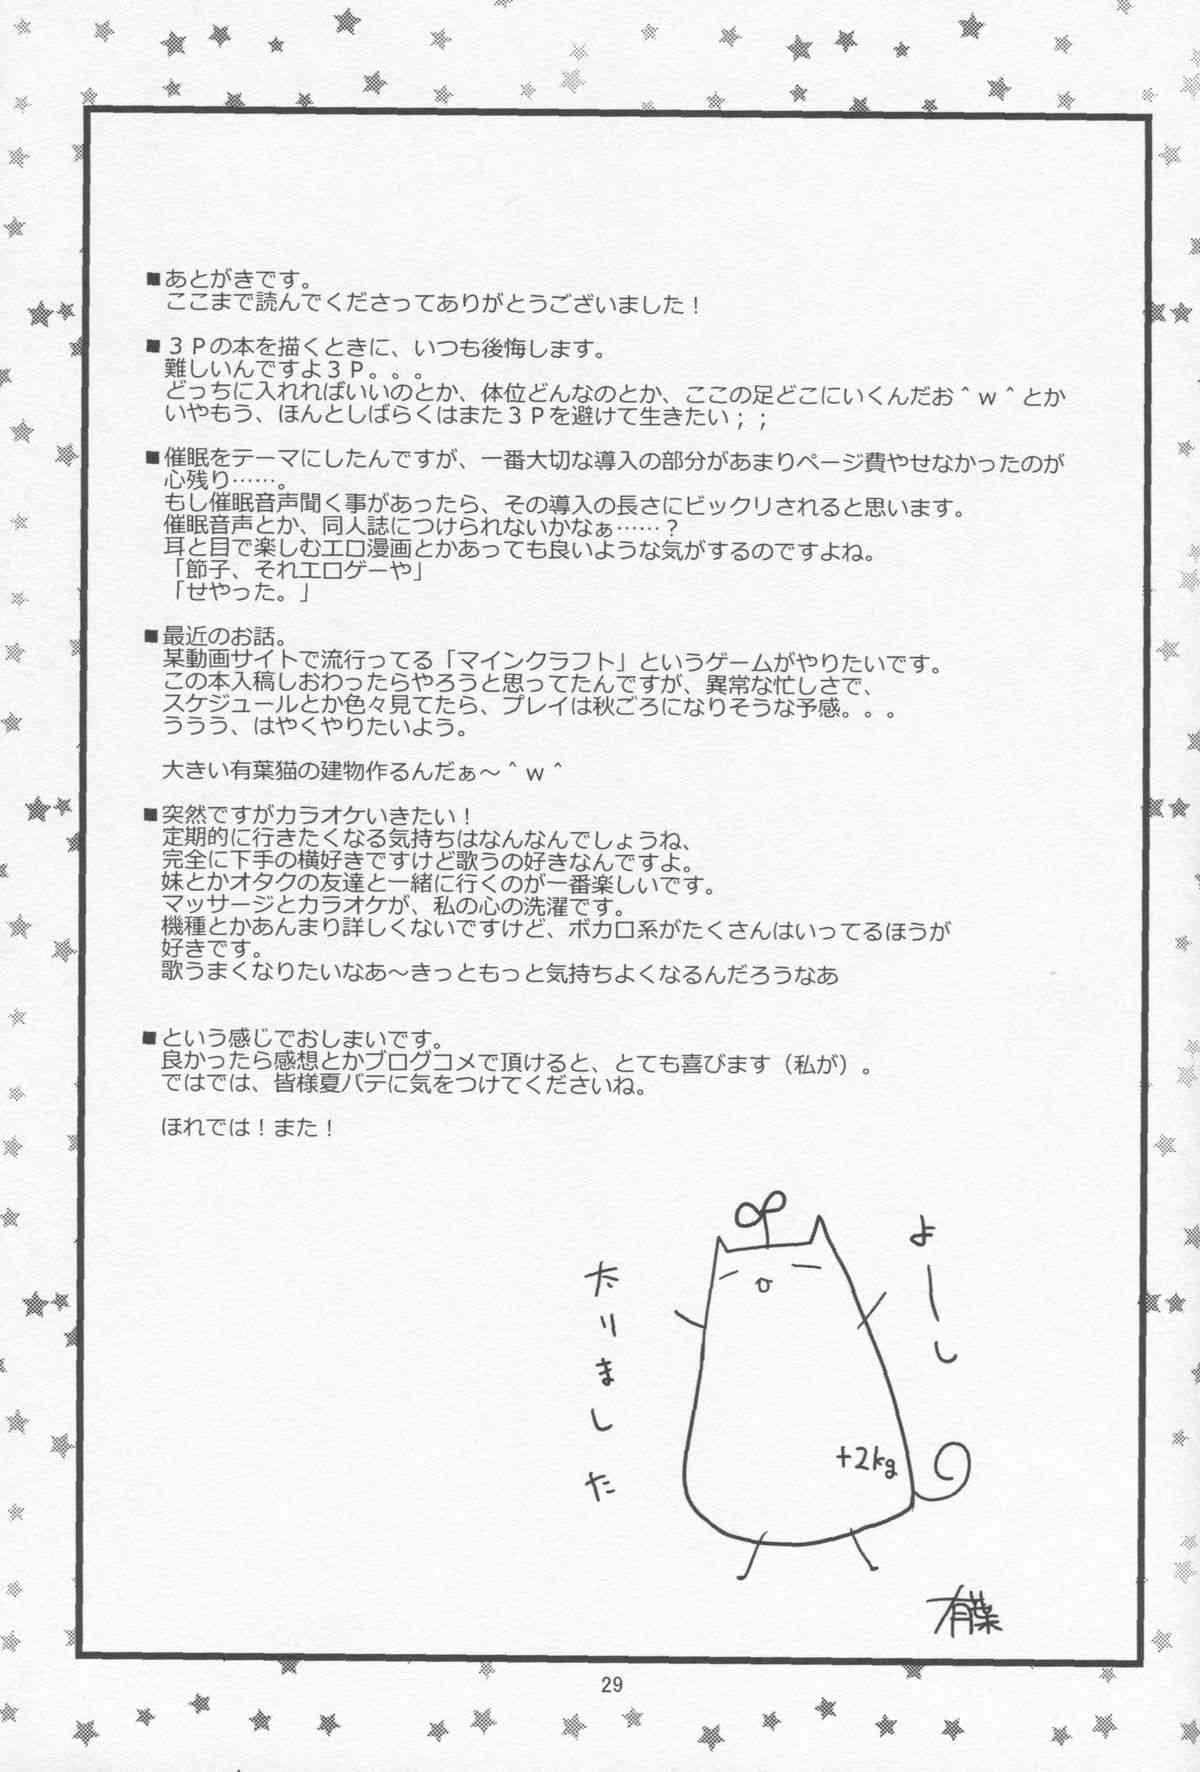 ■あとがきです。
ここまで読んでくださってありがとうございました！
■３Ｐの本を描くときに、いつも後悔します。
難しいんですよ３Ｐ。。。
どっちに入れればいいのとか、体位どんなのとか、ここの足どこにいくんだお＾ｗ＾とか
いやもう、ほんとしばらくはまた３Ｐを避けて生きたい；；
■催眠をテーマにしたんですが、一番大切な導入の部分があまりページ費やせなかったのが
心残り……。
もし催眠音声聞く事があったら、その導入の長さにビックリされると思います。
催眠音声とか、同人誌につけられないかなぁ……？
耳と目で楽しむエロ漫画とかあっても良いような気がするのですよね。
「節子、それエロゲーや」
「せやった。」
■最近のお話。
某動画サイトで流行ってる「マインクラフト」というゲームがやりたいです。
この本入稿しおわったらやろうと思ってたんですが、異常な忙しさで、
スケジュールとか色々見てたら、プレイは秋ごろになりそうな予感。。。
ううう、はやくやりたいよう。
大きい有葉猫の建物作るんだぁ～＾ｗ＾
■突然ですがカラオケいきたい！
定期的に行きたくなる気持ちはなんなんでしょうね、
完全に下手の横好きですけど歌うの好きなんですよ。
妹とかオタクの友達と一緒に行くのが一番楽しいです。
マッサージとカラオケが、私の心の洗濯です。
機種とかあんまり詳しくないですけど、ボカロ系がたくさんはいってるほうが
好きです。
歌うまくなりたいなあ～きっともっと気持ちよくなるんだろうなあ
■という感じでおしまいです。
良かったら感想とかブログコメで頂けると、とても喜びます（私が）。
ではでは、皆様夏バテに気をつけてくださいね。
ほれでは！また！
よーし
たりました
+2kg
有葉
29